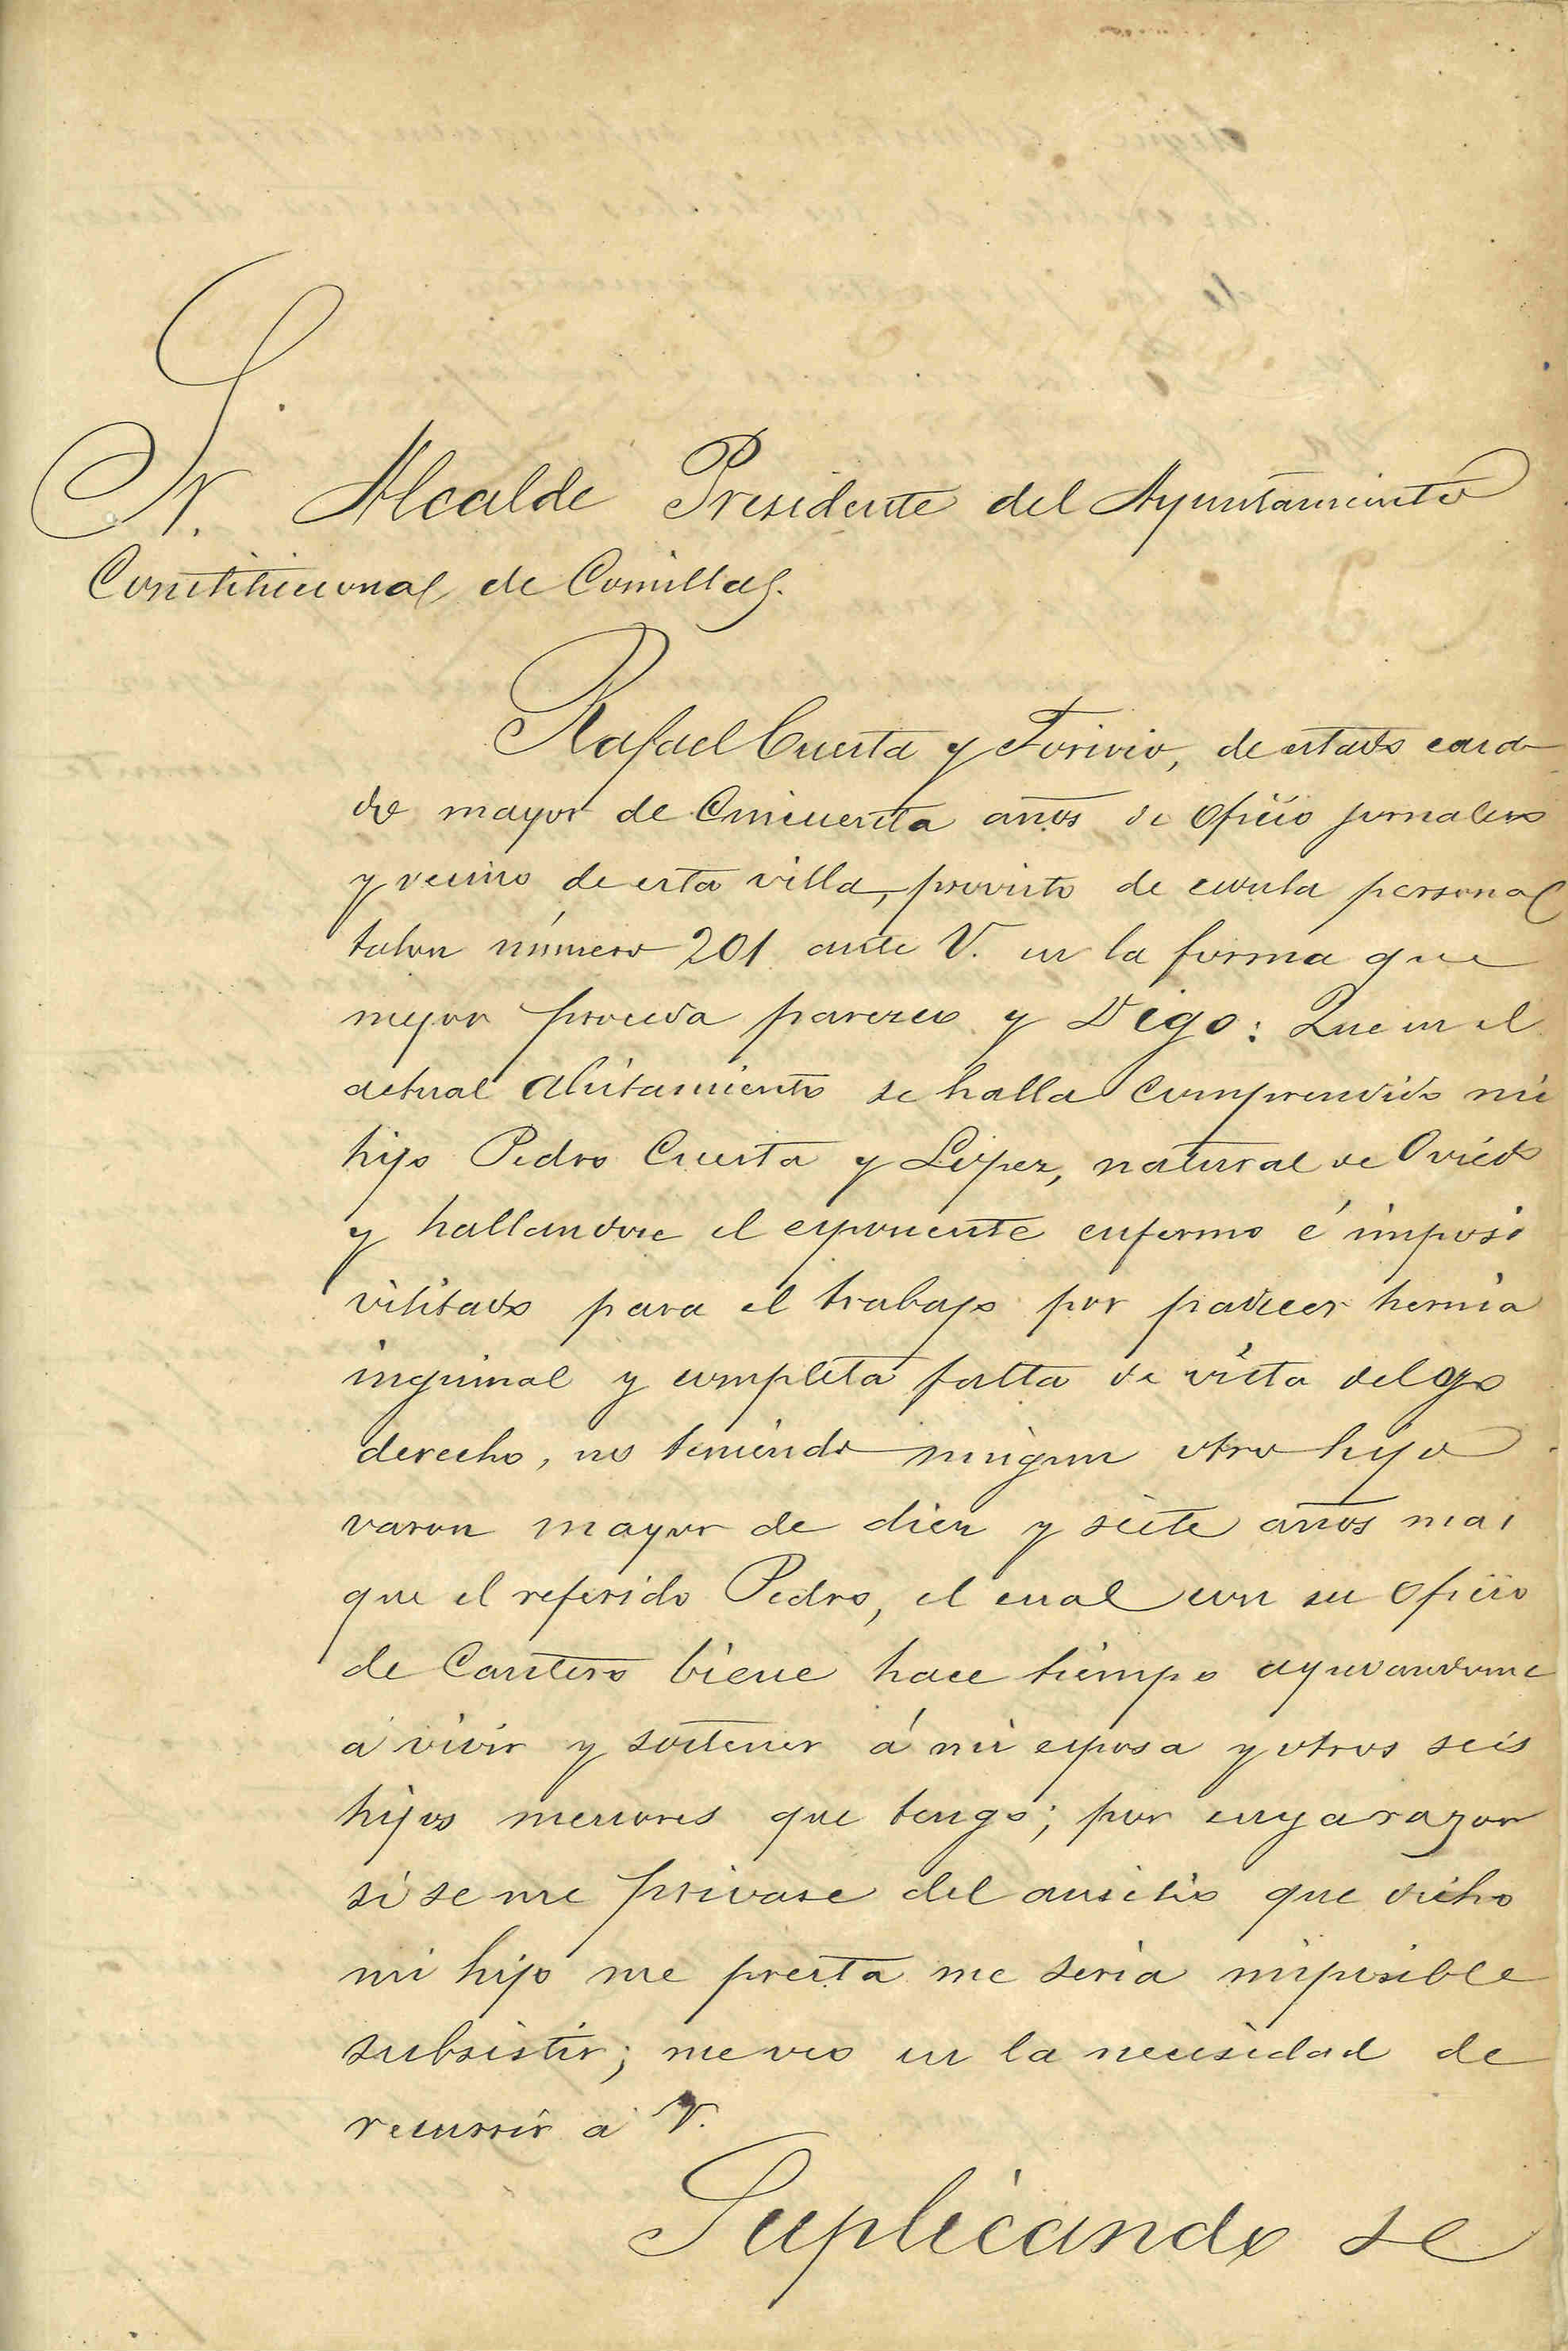 Sr. Alcalde Presidente del Ayuntamiento
Constitucional de Comillas.
Rafael Cuesta y Torivio, de estado casa-
do mayor de Cincuenta años de oficio jornalero
y vecino de esta villa, provisto de cedula personal
talon número 201 ante V. en la forma que
mejor proceda parezco y Digo: Que en el
actual alistamiento se halla comprendido mi
hijo Pedro Cuesta y López, natural de Oviedo
y hallandose el esponente enfermo é imposi
vilitado para el trabajo por padecer hernia
inguinal y completa falta de vista del ojo
derecho, no teniendo ningun otro hijo
varon mayor de diez y siete años mas
que el referido Pedro, el cual con su oficio
de Cantero biene hace tiempo ayudandome
á vivir y sostener á mi esposa y otros seis
hijos menores que tengo; por cuya razon
si se me privase del ausilio que dicho
mi hijo me presta me seria imposible
subsistir; me veo en la necesidad de
recurrir a V.
Suplicando se